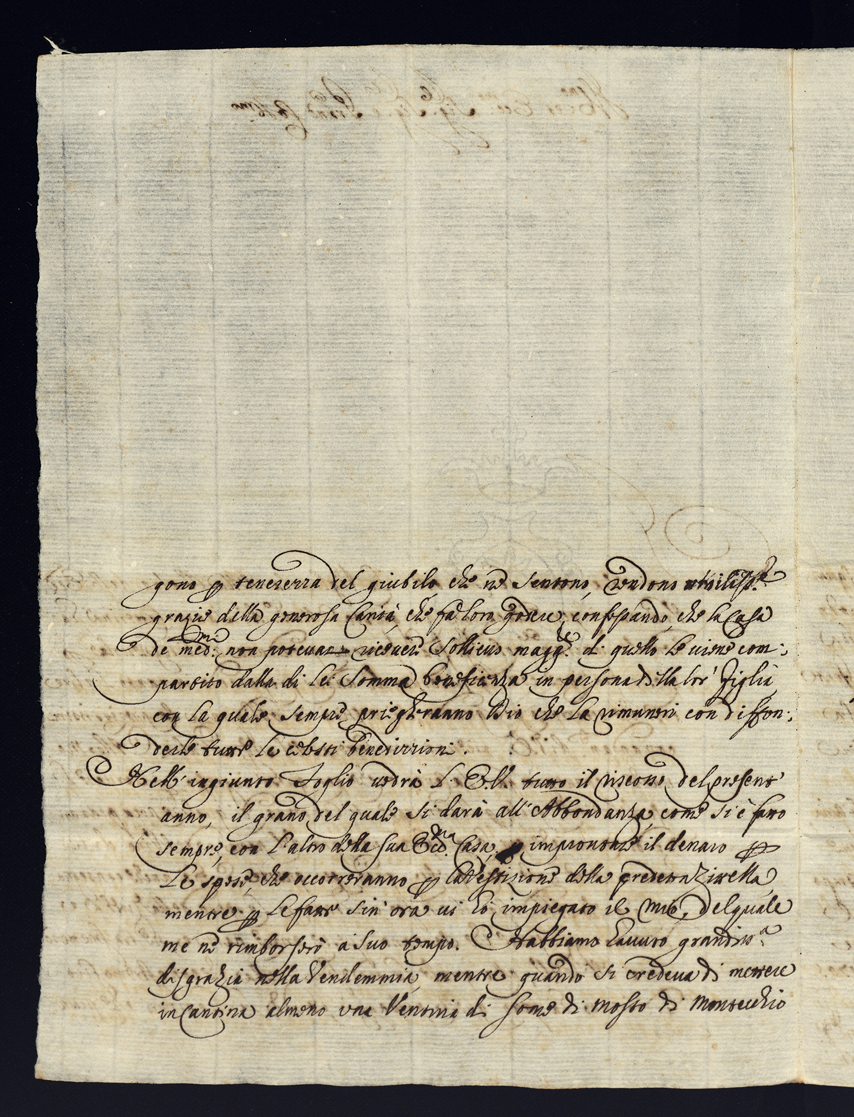 gono p tenerezza del giubilo, che ne sentono, rendono
grazie della generosa Carità, che fà loro godere, confessando, che la Casa
de med.mi non poteva ricevere sollievo magg.re di quello le viene com:
partito dalla di Lei Somma beneficenza in persona della lor' Figlia
con la quale sempre priegheranno Idio che La rimuneri con diffon:
derle tutte le celesti benedizzioni.
Nell' ingiunto Foglio vedrà L' E.V. tutto il
anno, il grano del quale si darà all' Abbondanza, come si è fatto
sempre, con l'altro della sua Ecc.ma Casa, p improntare il denaro p
Le spese, che occorreranno p la Vestizione della predetta Zitella,
mentre p Le fatte sin' ora vi hò impiegato il mio, del quale
me ne rimborserò a suo tempo. Habbiamo havuto grandiss.a
disgrazia nella Vendemmia, mentre quando si credeva di mettere
in Cantina almeno una Ventina di some di mosto di Montecchio